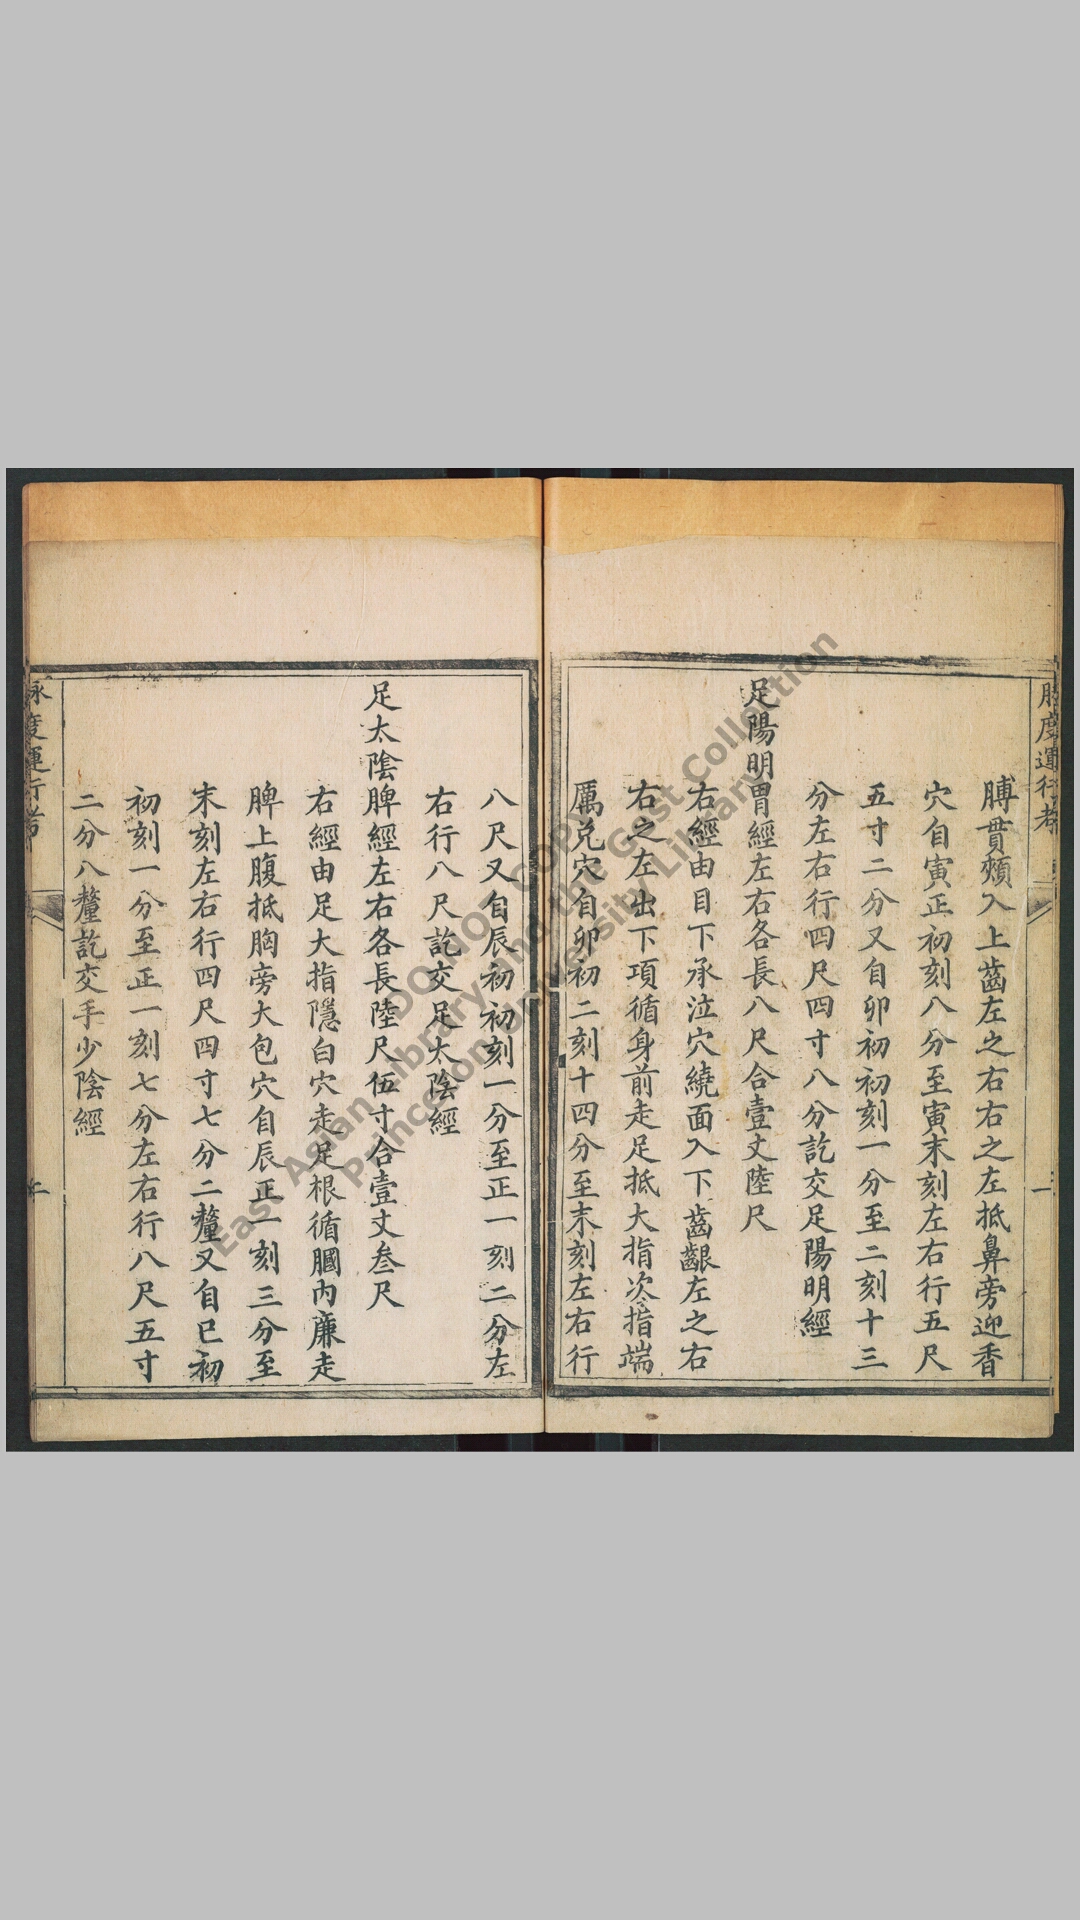 脉度運行考
一
膊貫頰入上齒左之右右之左抵鼻旁迎香
穴自寅正初刻八分至寅末刻左右行五尺
五寸二分又自卯初初刻一分至二刻十三
分左右行四尺四寸八分訖交足陽明經
足陽明胃經左右各長八尺合壹丈陸尺
右經由目下承泣穴繞面入下齒齦左之右
右之左出下項循身前走足抵大指次指端
厲兌穴自卯初二刻十四分至末刻左右行
八尺又自辰初初刻一分至正一刻二分左
右行八尺訖交足太陰經
足太陰脾經左右各長陸尺伍寸合壹丈叁尺
右經由足大指隱白穴走足根循膕內廉走
脾上腹抵胸旁大包穴自辰正一刻三分至
末刻左右行四尺四寸七分二釐又自巳初
初刻一分至正一刻七分左右行八尺五寸
二分八釐訖交手少陰經
脉度運行考
East Asian Library and the Gest Collection
Princeton University Library